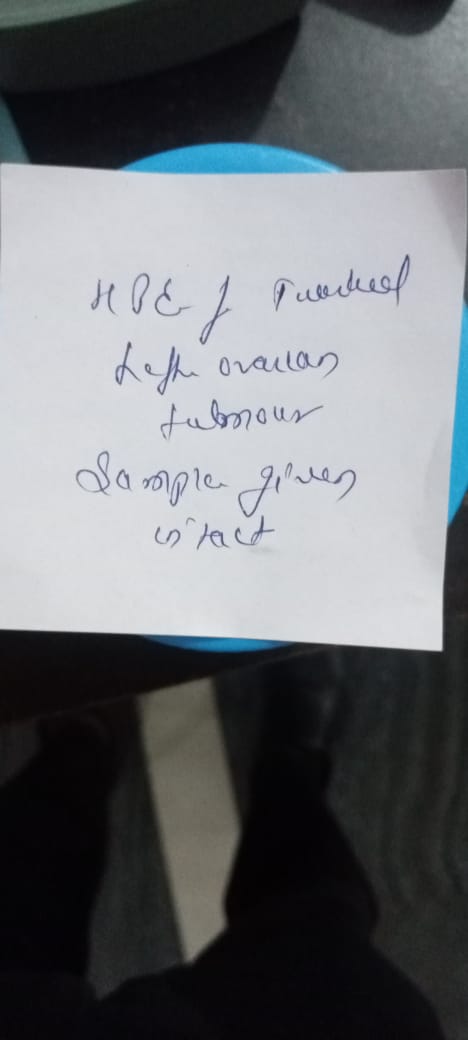 HPE of Twisted
Left ovarian
tubmour
Sample given
intact